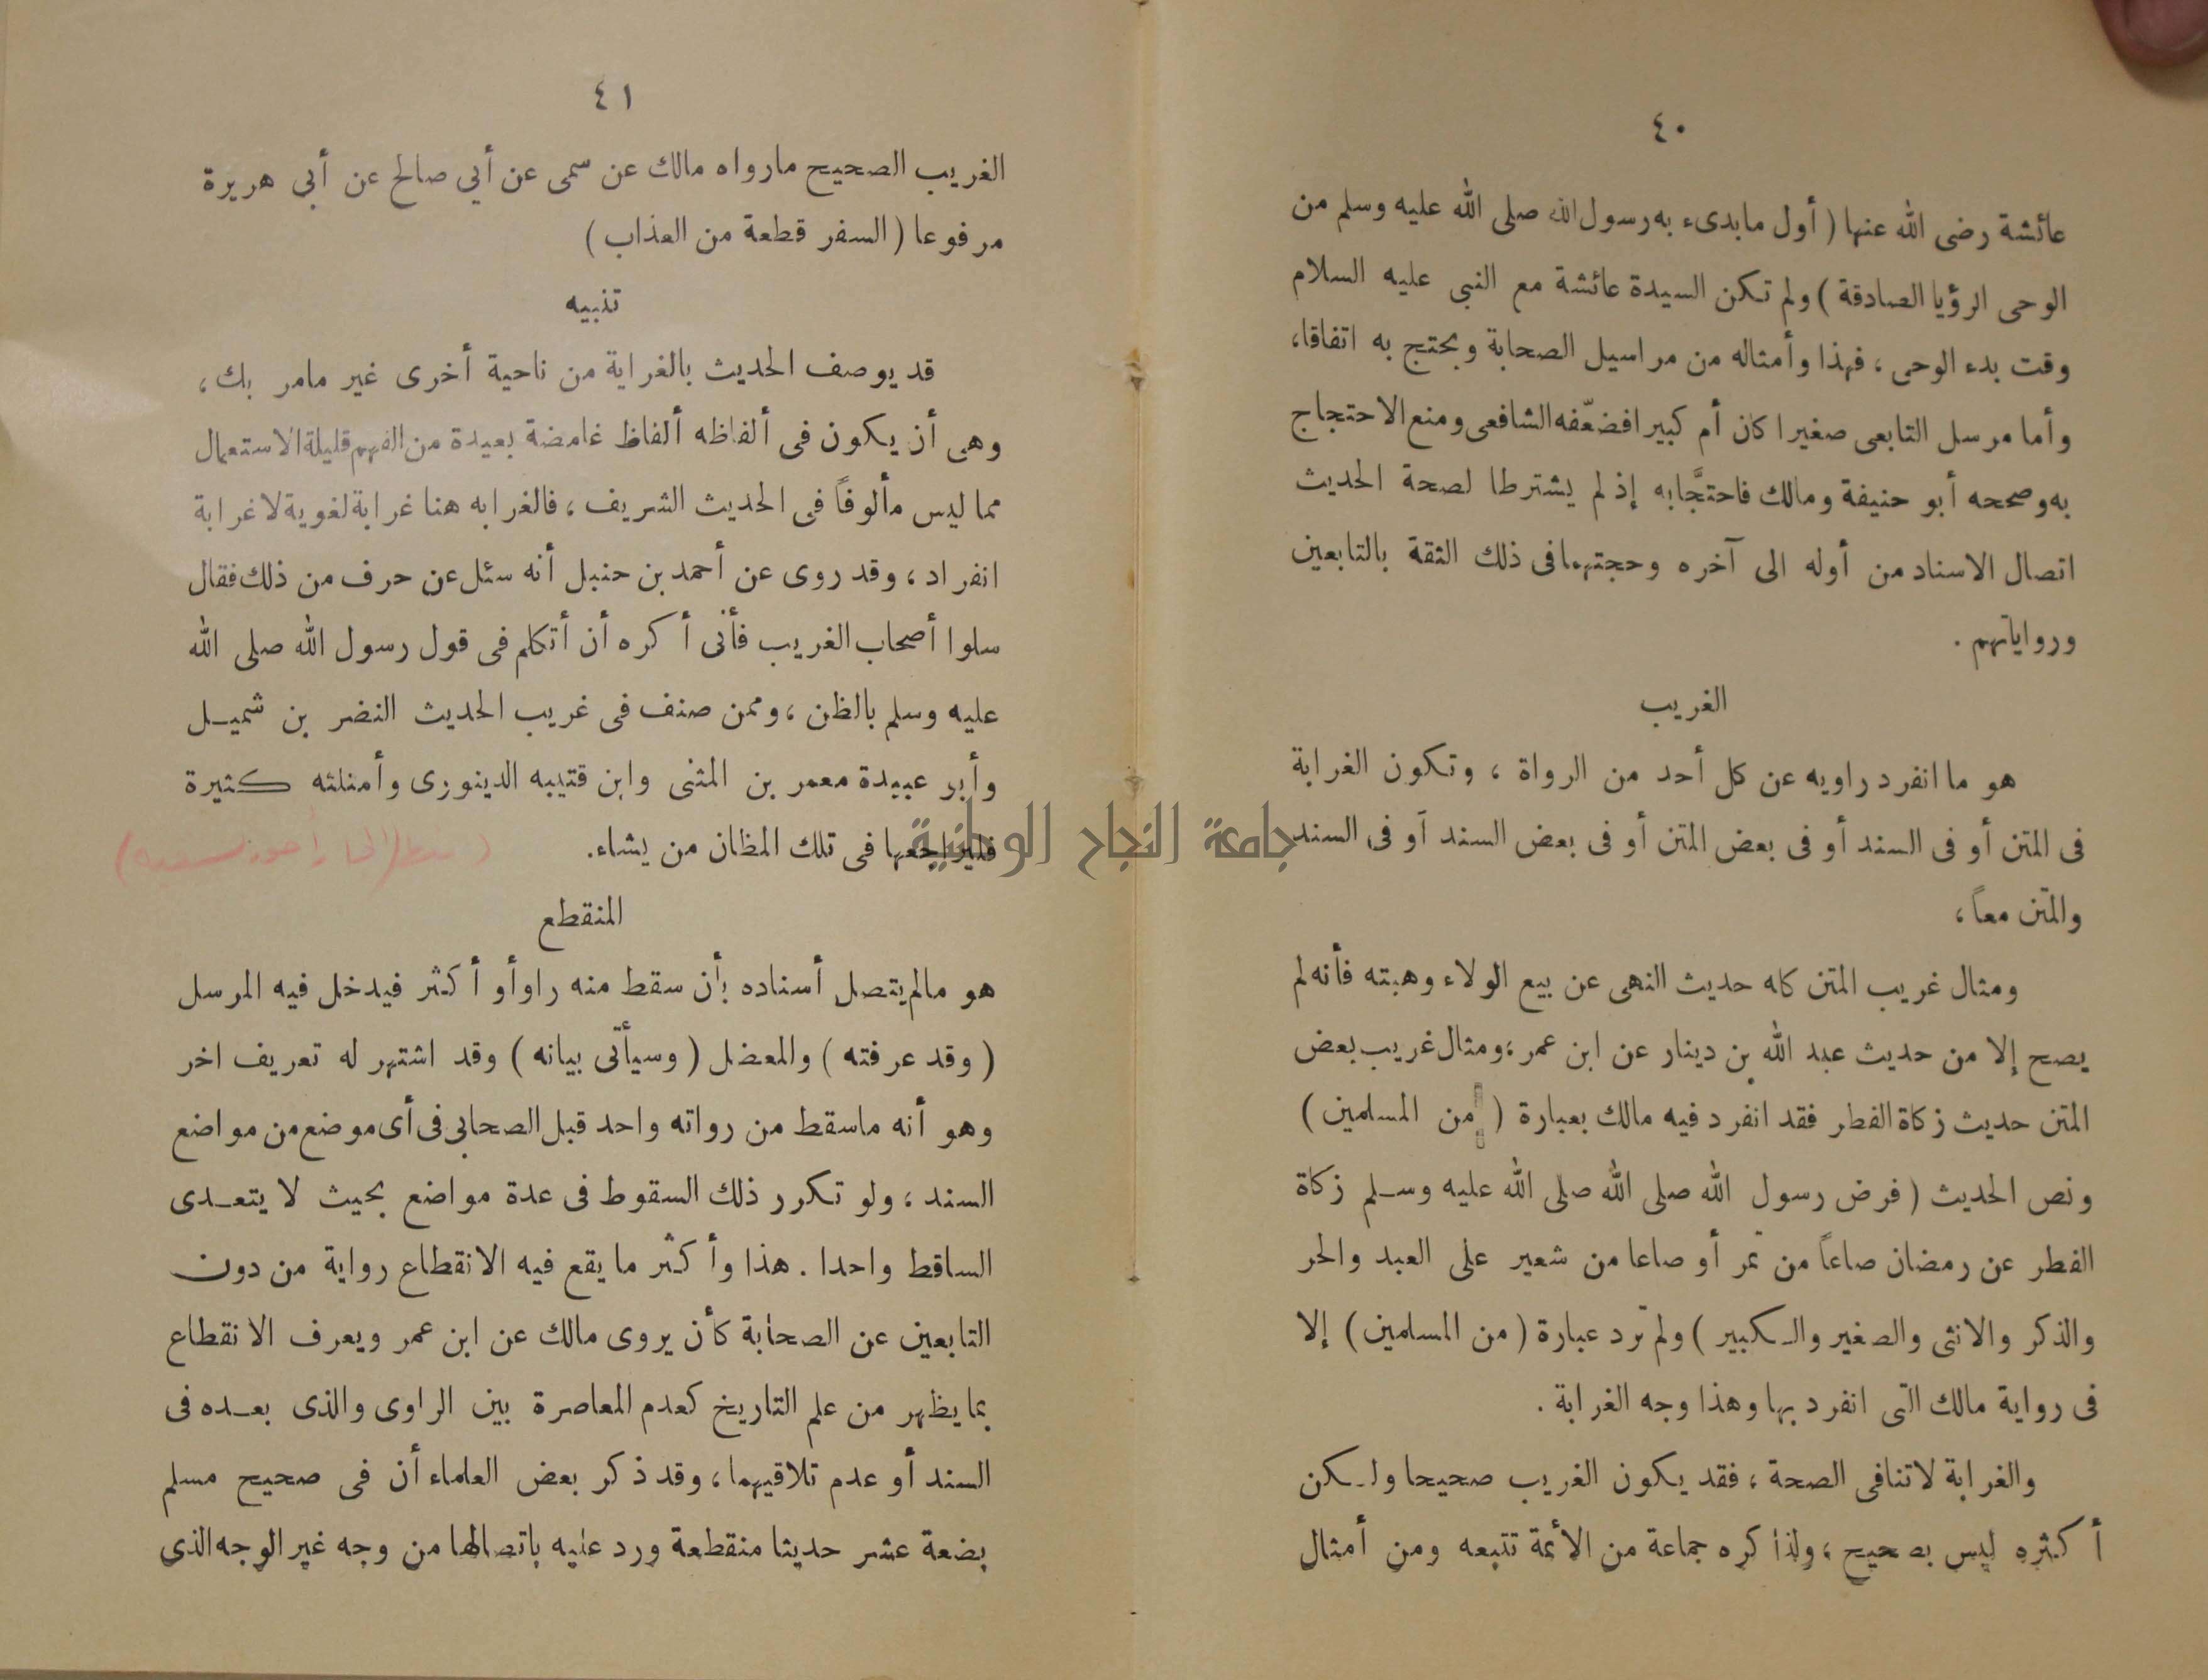 ٤٠
عائشة رضى الله عنها ( أول مابدىء به رسول الله صلى الله عليه وسلم من
الوحى الرؤيا الصادقة ) ولم تكن السيدة عائشة مع النبى عليه السلام
وقت بدء الوحى ، فهذا وأمثاله من مراسيل الصحابة ويحتج به اتفاقا،
وأما مرسل التابعى صغيرا كان أم كبيرا فضعّفه الشافعى ومنع الاحتجاج
به وصححه أبو حنيفة ومالك فاحتجَّا به إذ لم يشترطا لصحة الحديث
اتصال الاسناد من أوله الى آخره وحجتهما فى ذلك الثقة بالتابعين
ورواياتهم .
الغريب
هو ما انفرد راويه عن كل أحد من الرواة ، وتكون الغرابة
فى المتن أو فى السند أو فى بعض المتن أو فى بعض السند أو فى السند
والمتن معاً ،
ومثال غريب المتن كله حديث النهى عن بيع الولاء وهبته فأنه لم
يصح إلا من حديث عبد الله بن دينار عن ابن عمر ، ومثال غريب بعض
المتن حديث زكاة الفطر فقد انفرد فيه مالك بعبارة ( من المسلمين )
ونص الحديث ( فرض رسول الله صلى الله صلى الله عليه وسلم زكاة
الفطر عن رمضان صاعاً من تمر أو صاعا من شعير على العبد والحر
والذكر والانثى والصغير والكبير ) ولم ترد عبارة ( من المسلمين ) إلا
فى رواية مالك التى انفرد بها وهذا وجه الغرابة .
والغرابة لاتنافى الصحة ، فقد يكون الغريب صحيحا ولكن
أكثره ليس بصحيح ، ولذا كره جماعة من الأئمة تتبعه ومن أمثال
٤١
الغريب الصحيح مارواه مالك عن سمى عن أبي صالح عن أبى هريرة
مرفوعا ( السفر قطعة من العذاب )
تنبيه
قد يوصف الحديث بالغراية من ناحية أخرى غير مامر بك ،
وهى أن يكون فى ألفاظه ألفاظ غامضة بعيدة من الفهم قليلة الاستعمال
مما ليس مألوفاً فى الحديث الشريف ، فالغرابه هنا غرابة لغوية لا غرابة
انفراد ، وقد روى عن أحمد بن حنبل أنه سئل عن حرف من ذلك فقال
سلوا أصحاب الغريب فأنى أكره أن أتكلم فى قول رسول الله صلى الله
عليه وسلم بالظن ، وممن صنف فى غريب الحديث النضر بن شميل
وأبو عبيدة معمر بن المثنى وابن قتيبه الدينورى وأمثلته كثيرة
فليراجعها فى تلك المظان من يشاء.
المنقطع
هو مالم يتصل أسناده بأن سقط منه راو أو أكثر فيدخل فيه المرسل
( وقد عرفته ) والمعضل ( وسيأتى بيانه ) وقد اشتهر له تعريف اخر
وهو أنه ماسقط من رواته واحد قبل الصحابى فى أى موضع من مواضع
السند ، ولو تكرر ذلك السقوط فى عدة مواضع بحيث لا يتعدى
الساقط واحدا . هذا وأكثر ما يقع فيه الانقطاع رواية من دون
التابعين عن الصحابة كأن يروى مالك عن ابن عمر ويعرف الانقطاع
بما يظهر من علم التاريخ كعدم المعاصرة بين الراوى والذى بعده فى
السند أو عدم تلاقيهما ، وقد ذكر بعض العلماء أن فى صحيح مسلم
بضعة عشر حديثا منقطعة ورد عليه باتصالها من وجه غير الوجه الذى
جامعة النجاح الوطنية